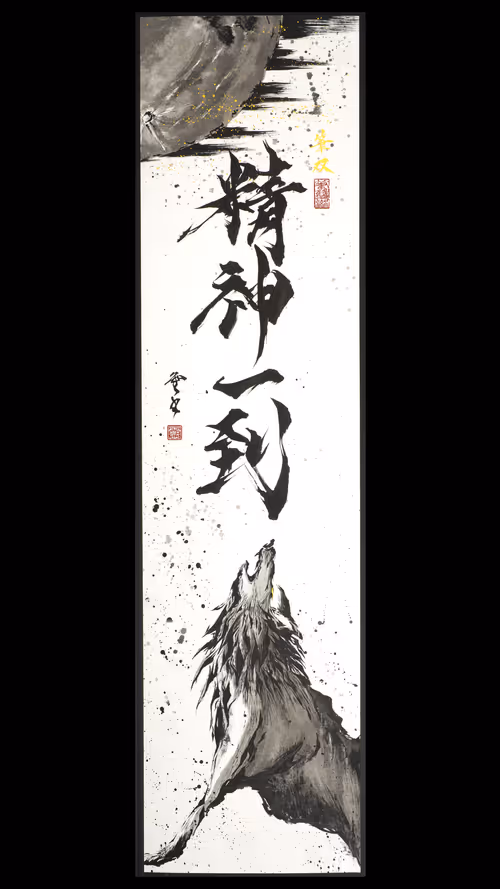 精神一到